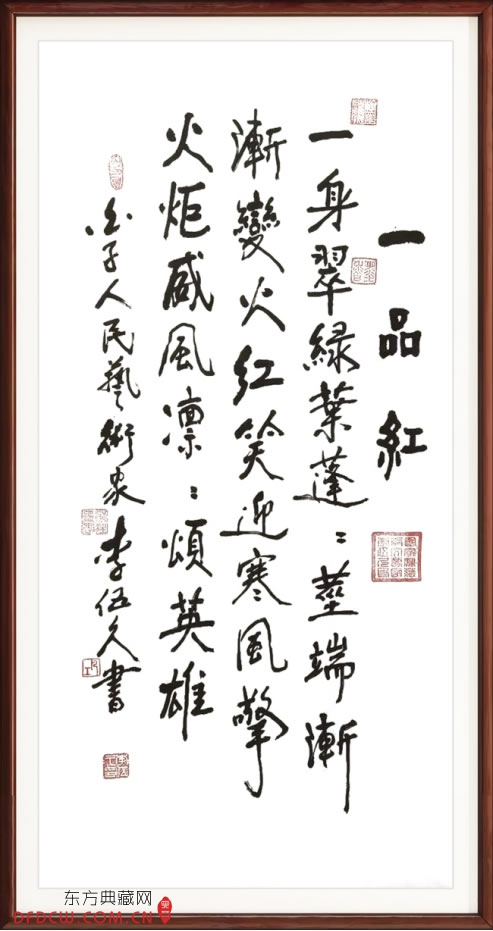 一品紅
一身翠緑葉蓬：莖端漸
漸變火紅笑迎寒風擎
火炬威風凛：頌英雄
人民藝術家李伍久書
东方典藏网
DFDCW.COM.CN